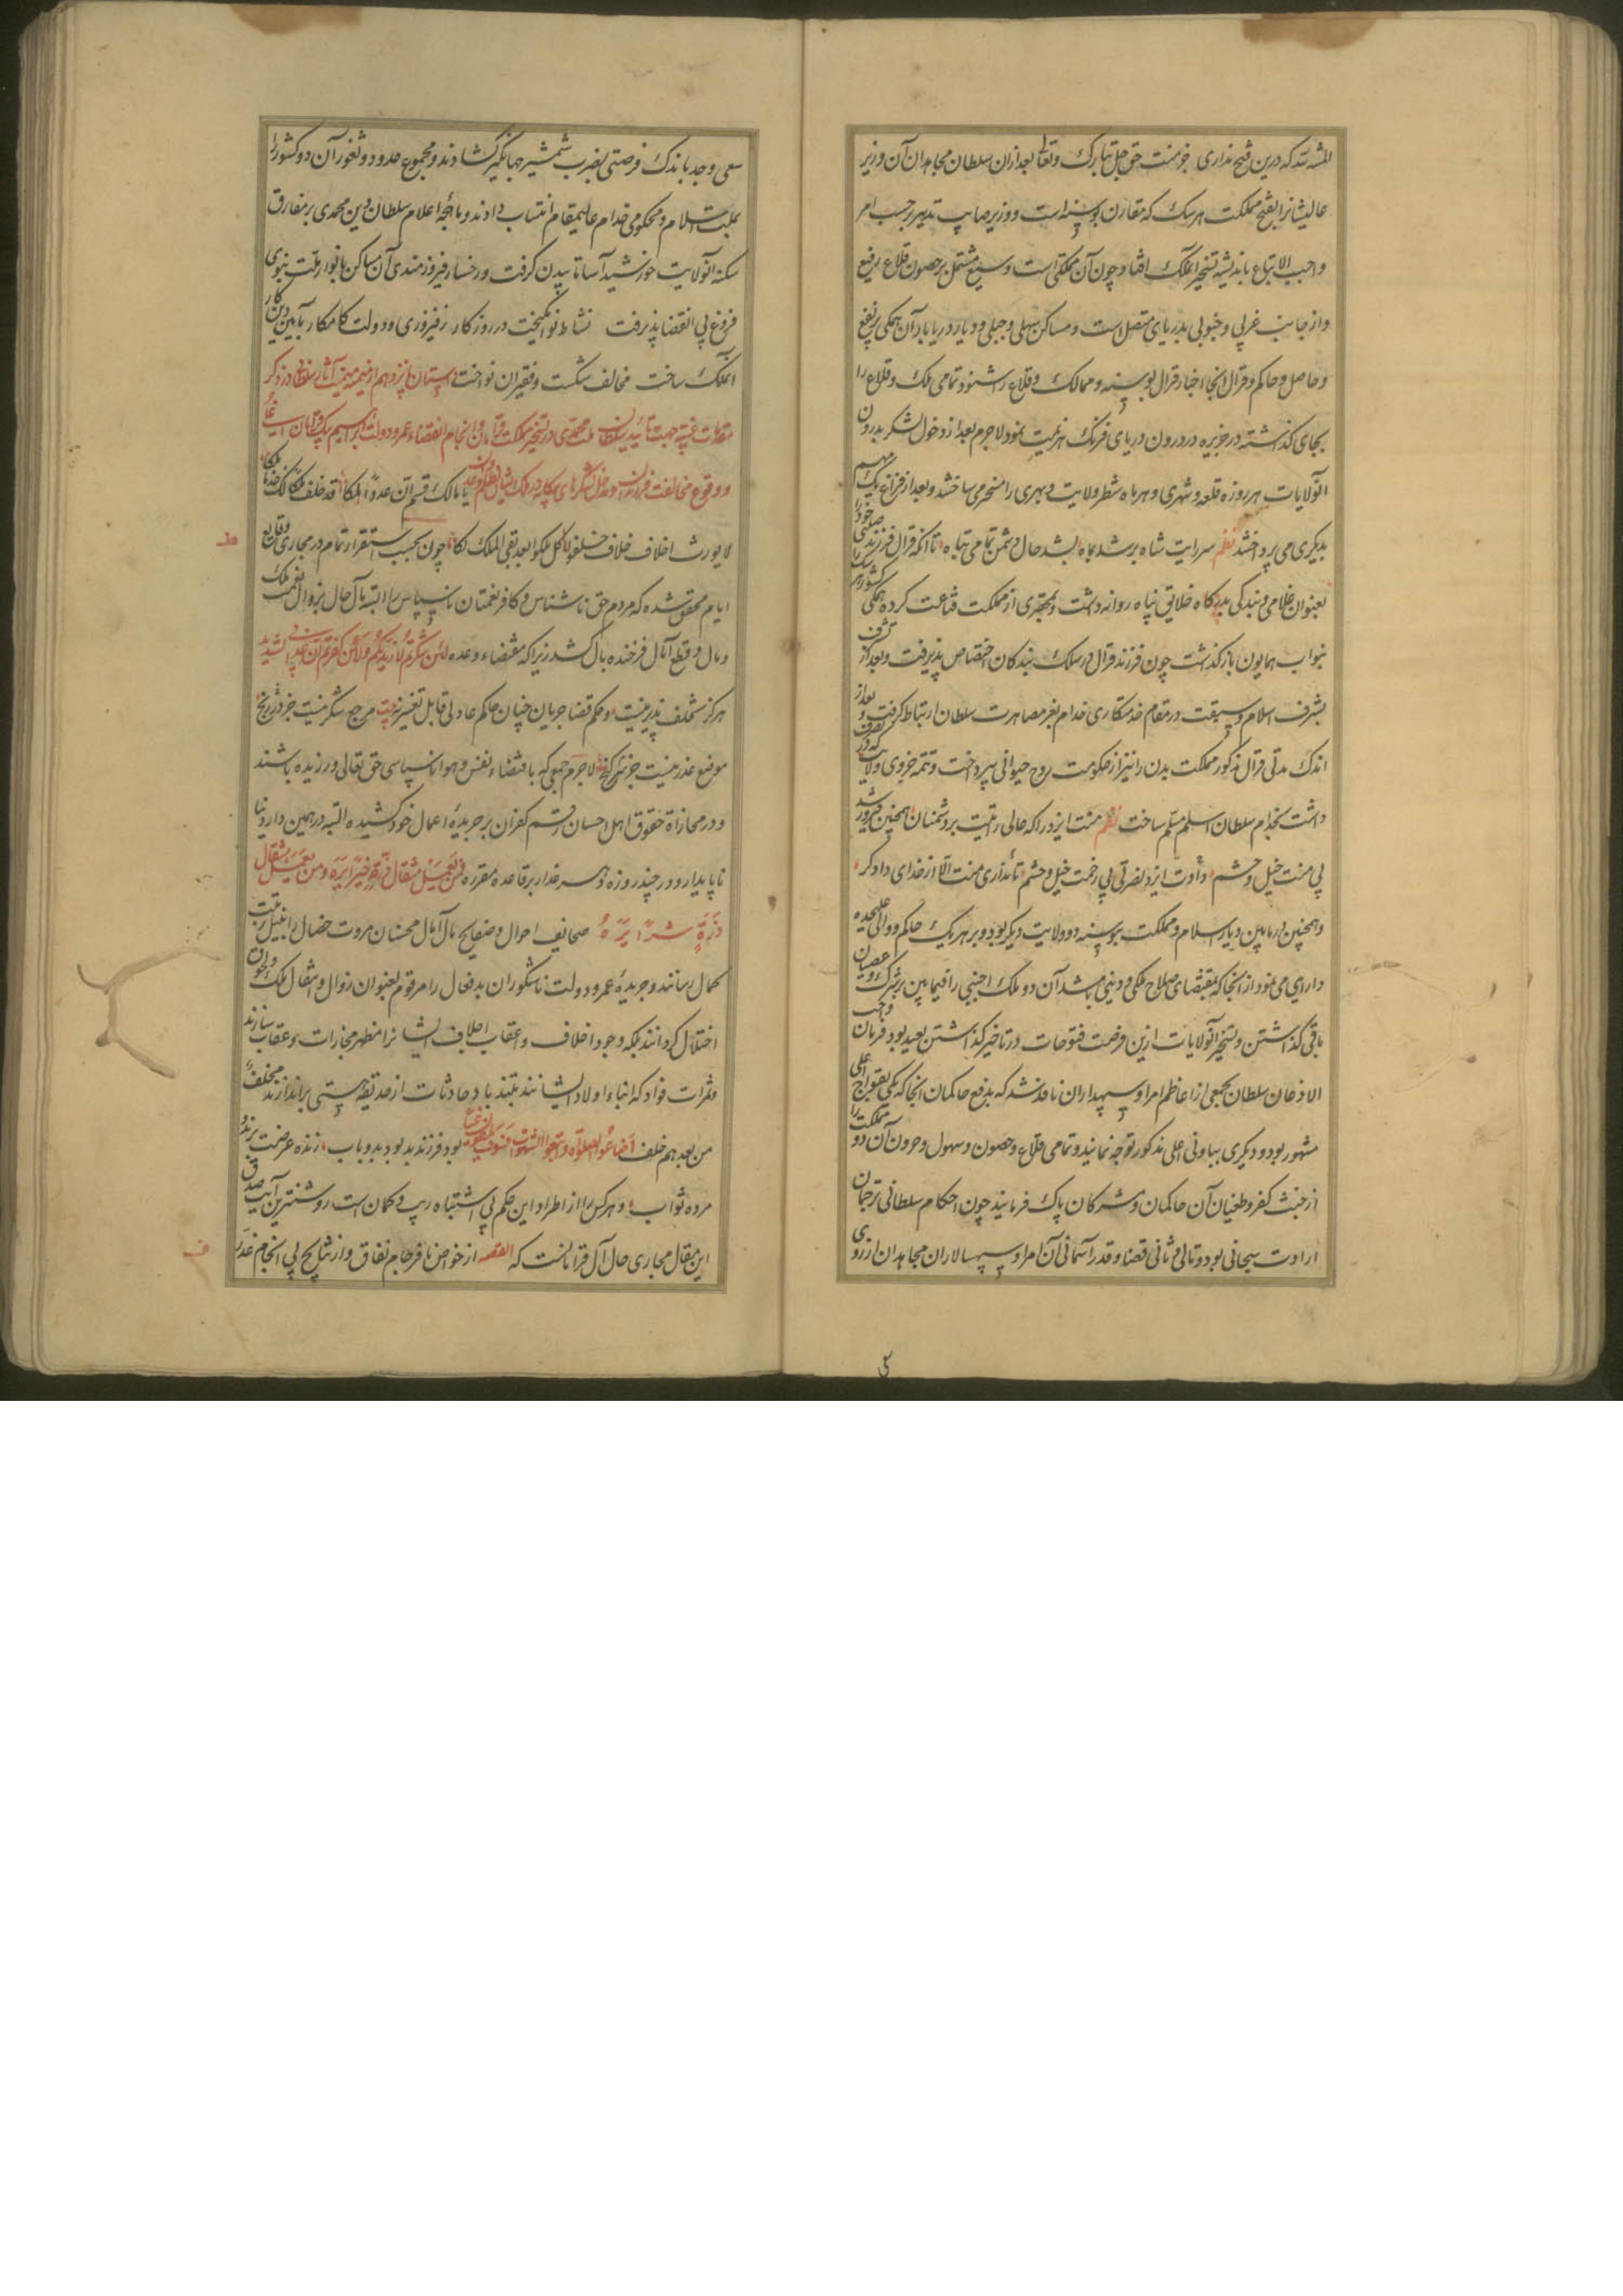 المنة لله که درین فتح نداری جز منت حق جل تبارک وتعالی بعد ازان سلطان مجاهدان آن وزیر
عالیشانرا بفتح مملکت هرسک که مقارن بوسنه است ووزیر صایب تدبیر برحسب امر
واجب الاتباع باندیشه تسخیر آنملک افتاد چون آن مملکتی است وسیع مشتمل بر حصون وقلاع رفیع
واز جانب غربی وجنوبی بدریای متصل است ومساکن سهلی وجبلی ودیار دریابار آن همکی پر نفع
وحاصل وحاکم وقرال آنجا اخبار قرال بوسنه وممالک وقلاع او شنود تمامی ملک وقلاع را
بجای کذاشته در جزیره در درون دریای فرنک هزیمت بنمود لاجرم بعد از دخول لشکر بدرون
آنولایات هر روزه قلعه وشهری وهر ماه شطر ولایت وبهری را مسخر می ساختند وبعد از فراغ یک مهم
بدیکری می پرداختند نظم سر رایت شاه بر شد بماه بشد حال دشمن تمامی تباه تا آنکه قرال فرزند صلبی خود را
بعنوان غلامی وبندکی بدرکاه خلایق پناه روانه داشت وبمحقری از مملکت قناعت کرده همکی کشور هرسک را
بنواب همایون باز کذاشت چون فرزند قرال در سلک بندکان اختصاص پذیرفت وبعد از تشرف
بشرف اسلام وسبقت در مقام خدمتکاری خدام بغر مصاهرت سلطان ارتباط کرفت وبعد از
اندک مدتی قرال مذکور مملکت بدن را نیز از حکومت روح حیوانی بپرداخت وتتمه جزوی ولایت که در تصرف
داشت بخدام سلطان اسلم مسلم ساخت نظم منت ایزد را که عالی رایت بر دشمنان همچنین فیروز شد
بی منت خیل وحشم دادت ایزد نصرتی بی زحمت خیل وحشم تا نداری منت الا از خدای دادکر
وهمچنین در مابین دیار اسلام ومملکت بوسنه دو ولایت دیکر بود وبر هر یک حاکم ووالی علیحده
دارایی می نمود از آنجا که مقتضای صلاح ملکی ودینی باشد آن دو ملک اجنبی را فیمابین بر شرک وعصیان
باقی کذاشتن وتسخیر آنولایات ازین فرصت فتوحات در تاخیر کذاشتن بعید بود فرمان واجب
الاذعان سلطان بجمعی از اعاظم امرا وسپهداران نافذ شد که بدفع حاکمان آنجا که یکی بقواج اعلی
مشهور بود ودیکری بپاولی اعلی مذکور توجه نمایند وتمامی قلاع وحصون وسهول وحزون آن دو مملکت را
از خبث کفر وطغیان آن حاکمان ومشرکان پاک فرمایند چون احکام سلطانی ترجمان
ارادت سبحانی بود وتالی وثانی قضا وقدر آسمانی آن امرا وسپهسالاران مجاهدان از روی
سعی وجد باندک فرصتی بضرب شمشیر جهانکیر کشادند ومجموع حدود وثغور آن دو کشور را
بملت اسلام ومحکومی خدام عالیمقام انتساب دادند وماهجه اعلام سلطان دین محمدی بر مفارق
سکنه آنولایت خورشید آسا تابیدن کرفت ورخسار فیروزمندی آن مساکن بانوار ملت نبوی
فروغ بی انقضا پذیرفت نشاط نو انکیخت در روزکار ز فیروزی ودولت کامکار بآیین دین کار
آنملک ساخت مخالف شکست وفقیران نواخت داستان پانزدهم از نیمه میمنت آثار سلطانی در ذکر
مقدمات غیبیه جهت تایید سلطان ملت محمدی در تسخیر مملکت قرامان وانجام انقضاء عمر ودولت ابراهیم بیک قرامان
ووقوع مخالفت فرزندان یا مالک قسم ان عدوا لملکا قد خلف ملکا لک
لا یورث اخلاف خلاف خلفوا کل ملکوا بعد بقی الملک لکا چون بحسب استقرار تمام در مجاری وقایع
ایام محقق شده که مردم حق ناشناس وکافر نعمتان ناسپاس را البته مآل حال بزوال نعمت ملک
ومال وقطع آمال فرخنده بال کشد زیرا که مقتضاء وعده لئن شکرتم لازیدنکم ولئن کفرتم ان عذابی لشدید
هرکز تخلف پذیر نیست وحکم قضا جریان چنان حاکم عادلی قابل تغییر نه بیت مرجع شکر نیست جز در رنج
موضع عذر نیست جز سر کنج لاجرم جمعی که باقتضاء نفس وهوا ناسپاسی حق تعالی ورزیده باشند
ودر مجازاة حقوق اهل احسان رقم کفران بر جریده اعمال خود کشیده البته در همین دار دنیا
ناپایدار ودر چند روزه دهر غدار بر قاعده مقرره فمن یعمل مثقال ذرة خیرا یره ومن یعمل مثقال
ذرة شرا یره صحایف احوال وصفایح مآل آمال محسنان مروت خصال را بنیل مرتبت
کمال رسانند وجریده عمر ودولت ناشکوران بدفعال را مرقوم بعنوان زوال وانتقال ملک
اختلال کردانند بلکه وجود اخلاف واعقاب اجلاف ایشانرا مظهر مجازات وعقاب سازند
وثمرات فواد که ابناء اولاد ایشانند بتندباد حادثات از حدیقه هستی براندازند فخلف
من بعدهم خلف اضاعوا الصلوة واتبعوا الشهوات فسوف یلقون غیا بود فرزند بد بود بد وباب زنده عرضت برند
مرده ثواب وهرکس را از اطراد این حکم بی اشتباه ریب وکمان است روشنترین آیت صدق
این مقال مجاری حال آل قرامانست که القصه از خواص نافرجام نفاق واز نتایج بی انجام غدر